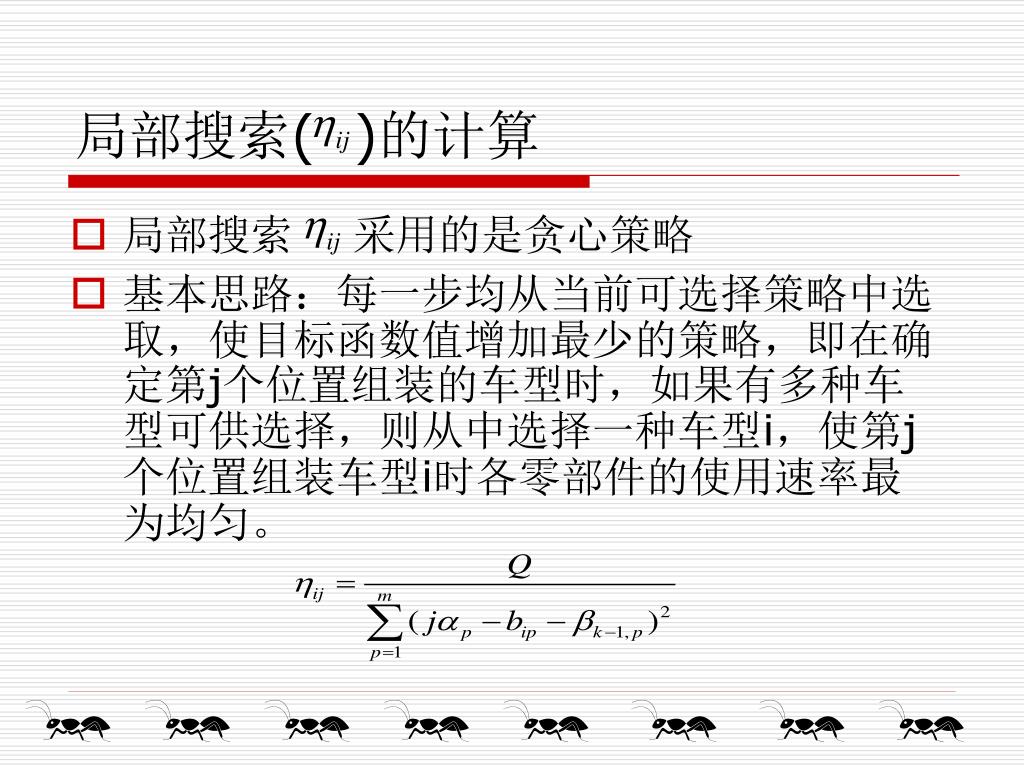 局部搜索(ηij)的计算
局部搜索 ηij 采用的是贪心策略
基本思路：每一步均从当前可选择策略中选
取，使目标函数值增加最少的策略，即在确
定第j个位置组装的车型时，如果有多种车
型可供选择，则从中选择一种车型i，使第j
个位置组装车型i时各零部件的使用速率最
为均匀。
ηij = Q / ∑_{p=1}^{m} (jα_p − b_{ip} − β_{k−1,p})²